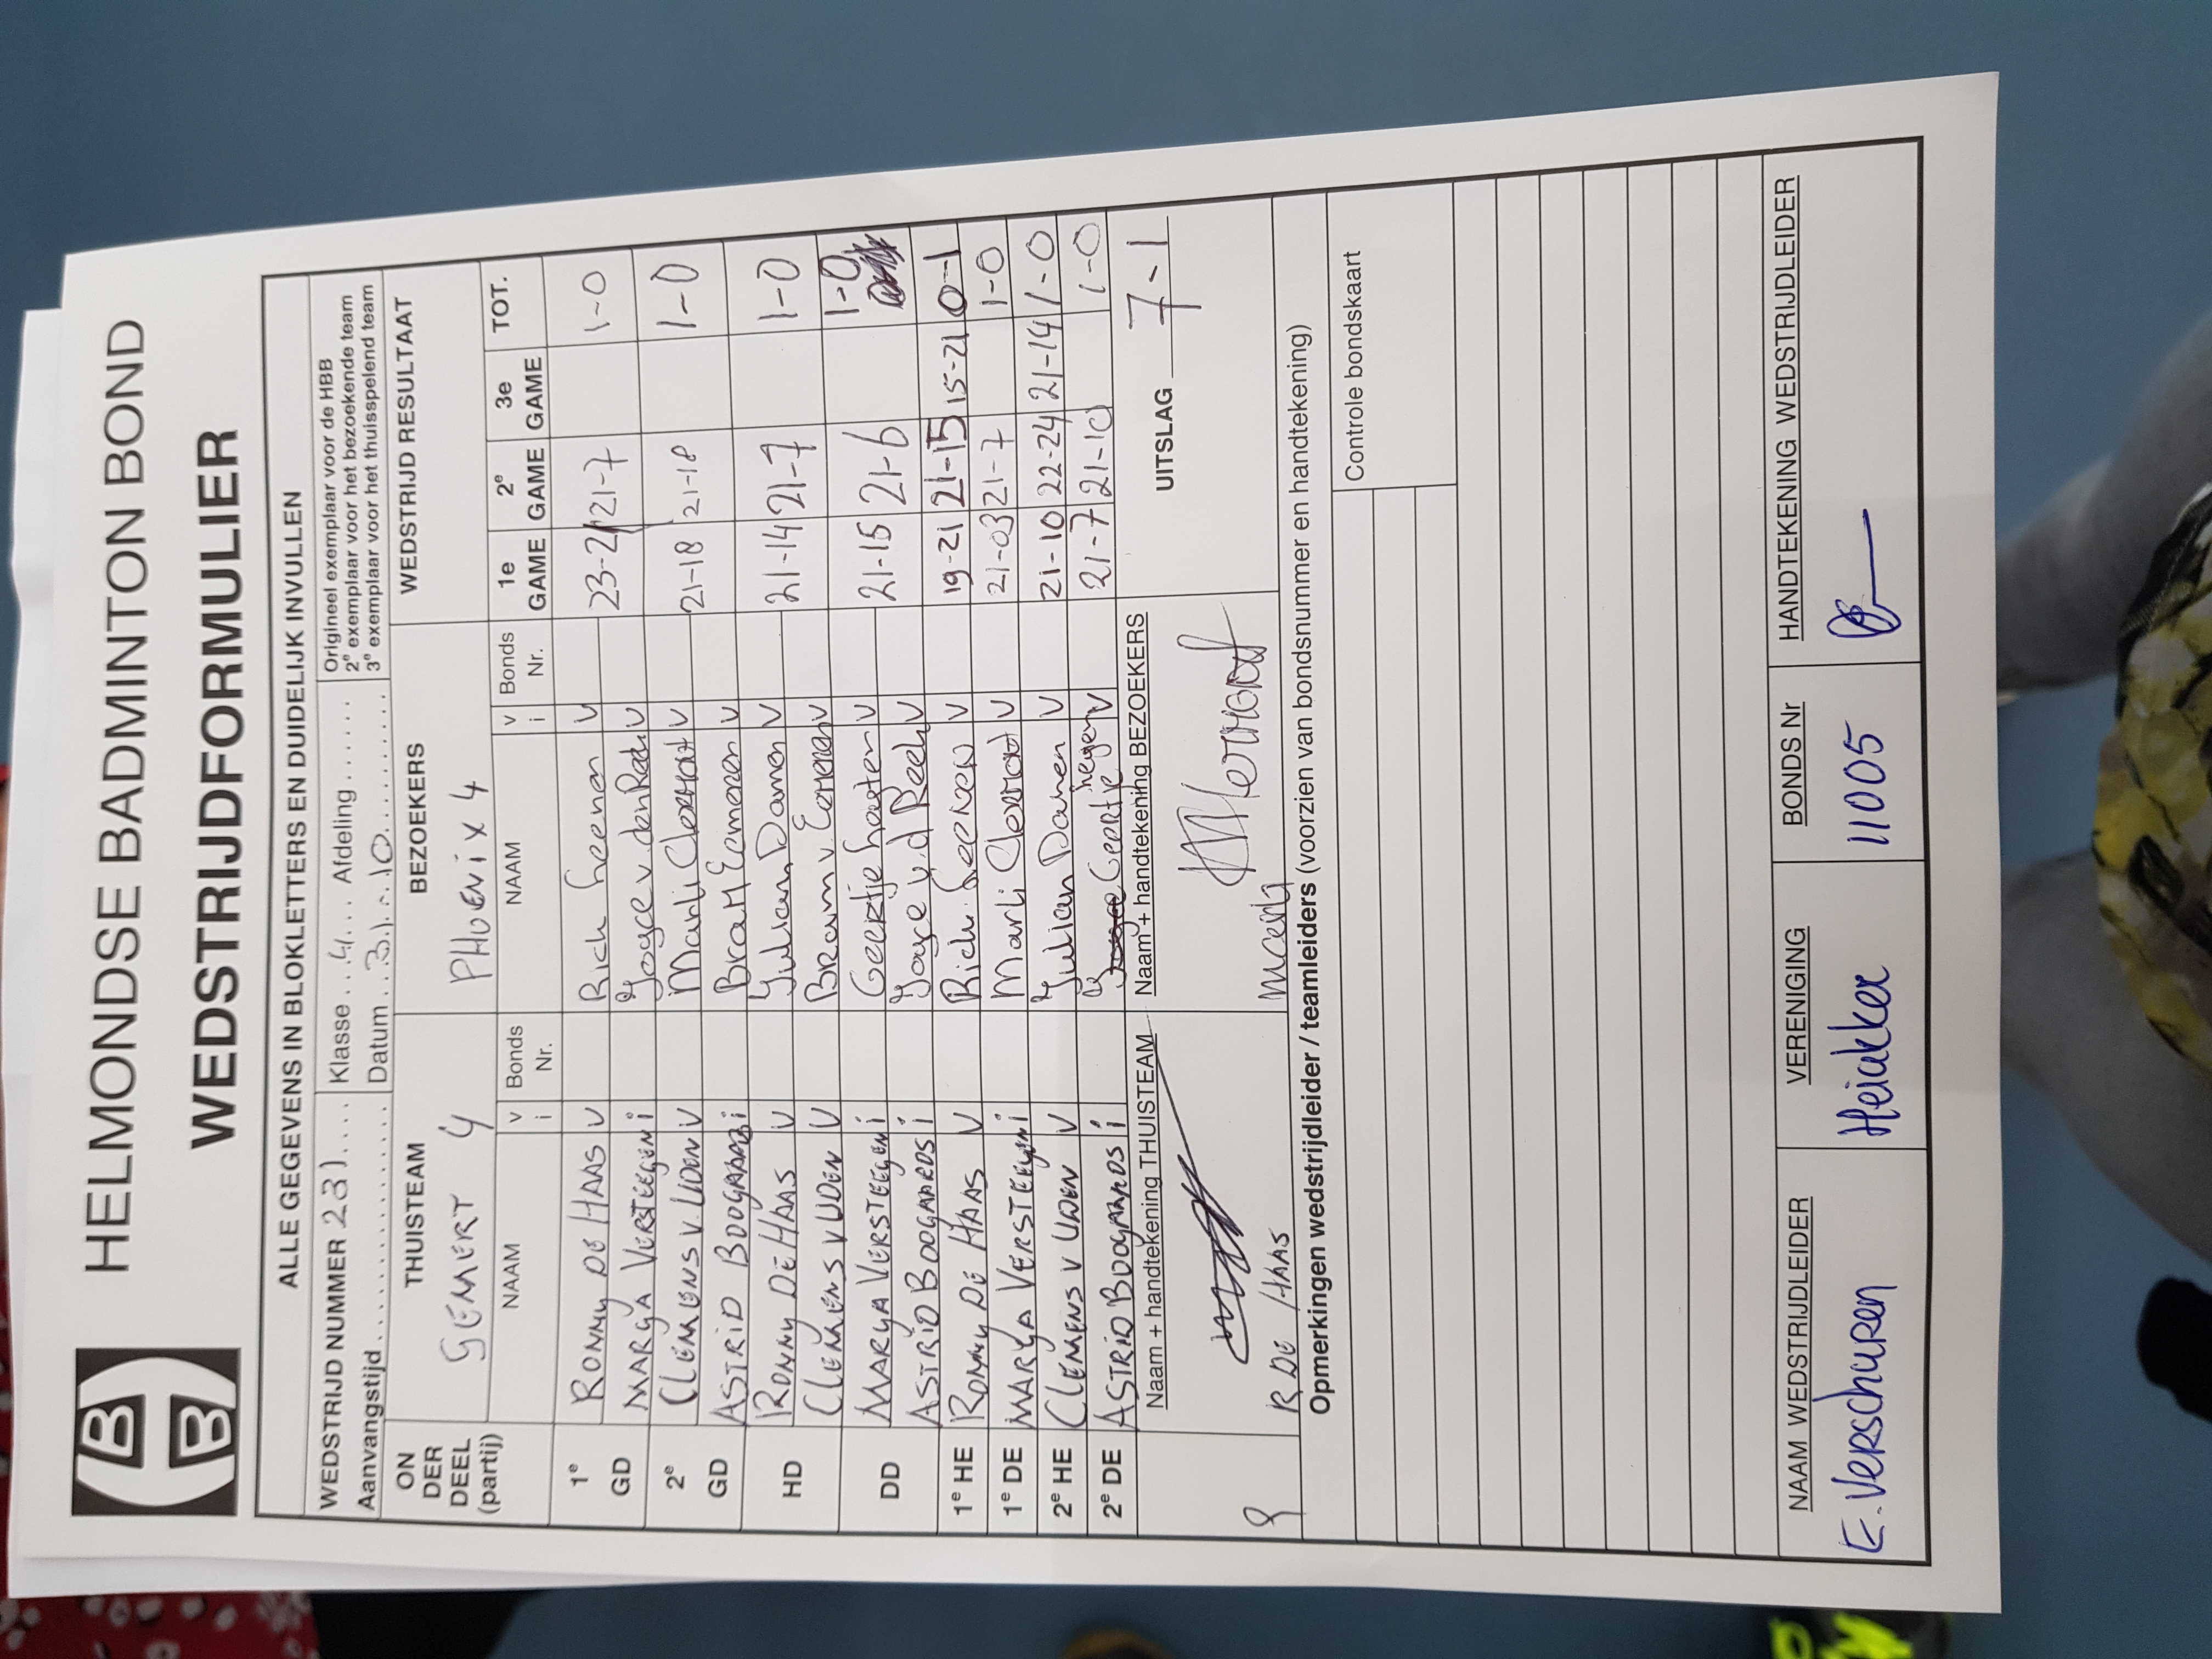 HELMONDSE BADMINTON BOND
WEDSTRIJDFORMULIER
ALLE GEGEVENS IN BLOKLETTERS EN DUIDELIJK INVULLEN
WEDSTRIJD NUMMER 231.... Klasse ..4... Afdeling ...... Origineel exemplaar voor de HBB
2e exemplaar voor het bezoekende team
Aanvangstijd............... Datum ..31-.10........ 3e exemplaar voor het thuisspelend team
ON DER DEEL (partij) THUISTEAM BEZOEKERS WEDSTRIJD RESULTAAT
GEMERT 4 PHOENIX 4
NAAM v i Bonds Nr. NAAM v i Bonds Nr. 1e GAME 2e GAME 3e GAME TOT.
1e RONNY DE HAAS V Rich Leenen V 23-21 21-7 1-0
GD MARGA VERSTEEGEN i Joyce v. den V
2e CLEMENS V. UDEN V Marli V 21-18 21-18 1-0
GD ASTRID BOOGAARDS i Bram V
HD RONNY DE HAAS V Julian Damen V 21-14 21-7 1-0
CLEMENS V UDEN V Bram v. V
DD MARGA VERSTEEGEN i Geertje V 21-15 21-6 1-0
ASTRID BOOGAARDS i Joyce v.d V
1e HE RONNY DE HAAS V Rich Leenen V 19-21 21-15 15-21 0-1
1e DE MARGA VERSTEEGEN i Marli V 21-03 21-7 1-0
2e HE CLEMENS V UDEN V Julian Damen V 21-10 22-24 21-14 1-0
2e DE ASTRID BOOGAARDS i Geertje V 21-7 21-10 1-0
Naam + handtekening THUISTEAM Naam + handtekening BEZOEKERS UITSLAG 7-1
R DE HAAS
Opmerkingen wedstrijdleider / teamleiders (voorzien van bondsnummer en handtekening)
Controle bondskaart
NAAM WEDSTRIJDLEIDER VERENIGING BONDS Nr HANDTEKENING WEDSTRIJDLEIDER
E. Verschuren Heiakker 11005